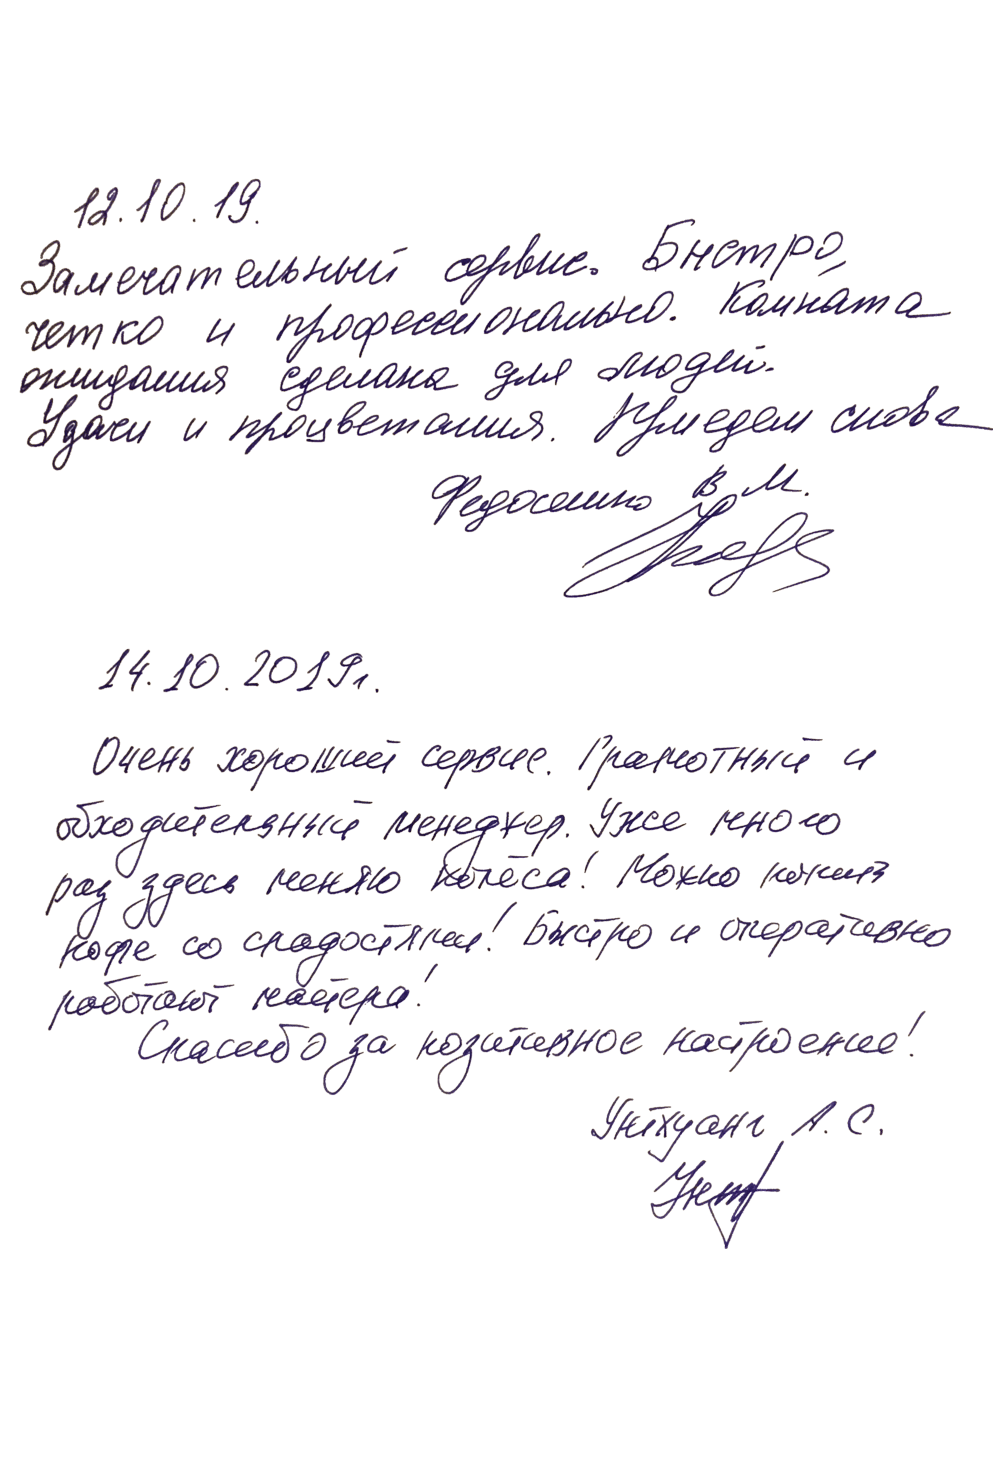 12.10.19.
Замечательный сервис. Быстро,
четко и профессионально. Комната
ожидания сделана для людей.
Удачи и процветания. Приедем снова
Федосенко В М.
14.10.2019г.
Очень хороший сервис. Грамотный и
обходительный менеджер. Уже много
раз здесь меняю колёса! Можно попить
кофе со сладостями! Быстро и оперативно
работают мастера!
Спасибо за позитивное настроение!
Унтхуанг А. С.